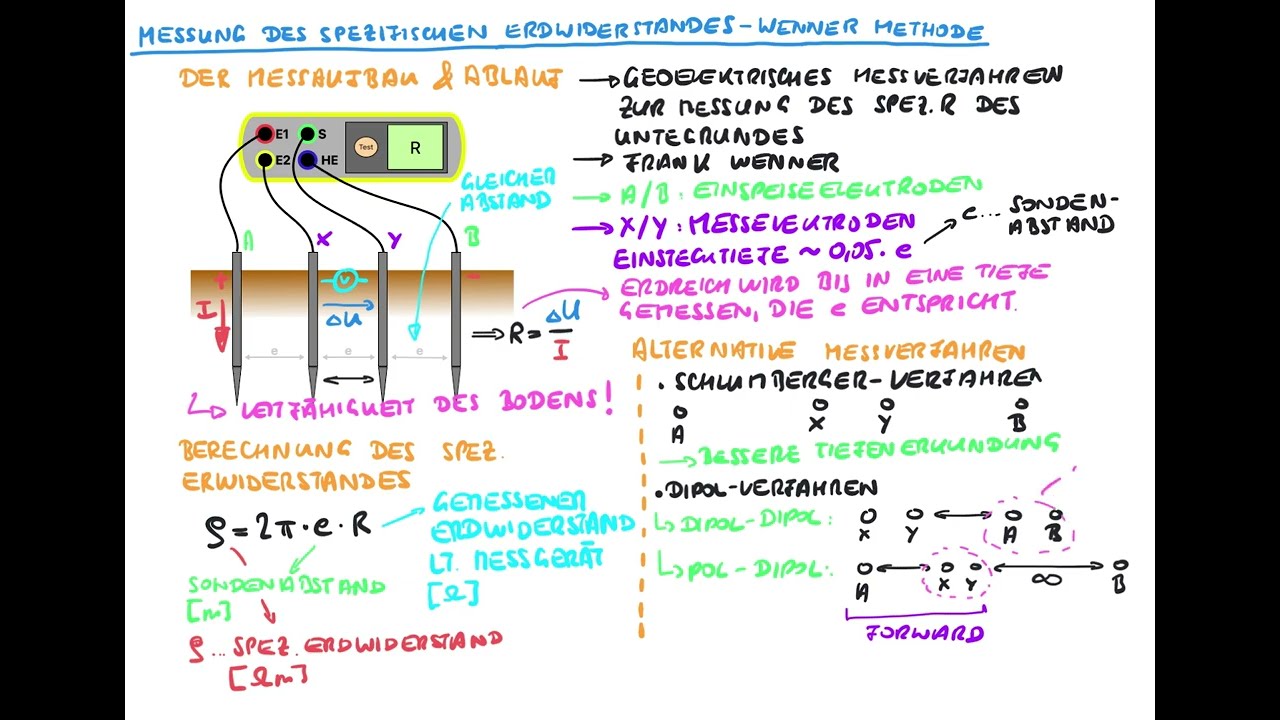 MESSUNG DES SPEZIFISCHEN ERDWIDERSTANDES - WENNER METHODE
DER MESSAUFBAU & ABLAUF
E1 S
E2 HE
Test
R
GLEICHER
ABSTAND
A X Y B
+ V -
I
ΔU
e e e
⇒ R = ΔU / I
↳ LEITFÄHIGKEIT DES BODENS!
→ GEOELEKTRISCHES MESSVERFAHREN
ZUR MESSUNG DES SPEZ. R DES
UNTEGRUNDES
→ FRANK WENNER
→ A/B: EINSPEISEELEKTRODEN
→ X/Y: MESSELEKTRODEN
EINSTECKTIEFE ~ 0,05 · e
e... SONDEN-
ABSTAND
ERDREICH WIRD BIS IN EINE TIEFE
GEMESSEN, DIE e ENTSPRICHT.
BERECHNUNG DES SPEZ.
ERWIDERSTANDES
ρ = 2π · e · R
GEMESSENER
ERDWIDERSTAND
LT. MESSGERÄT
[Ω]
SONDENABSTAND
[m]
ρ... SPEZ. ERDWIDERSTAND
[Ωm]
ALTERNATIVE MESSVERFAHREN
· SCHLUMBERGER-VERFAHREN
A X Y B
→ BESSERE TIEFENERKUNDUNG
· DIPOL-VERFAHREN
↳ DIPOL-DIPOL:
X Y A B
↳ POL-DIPOL:
A X Y ∞ B
FORWARD